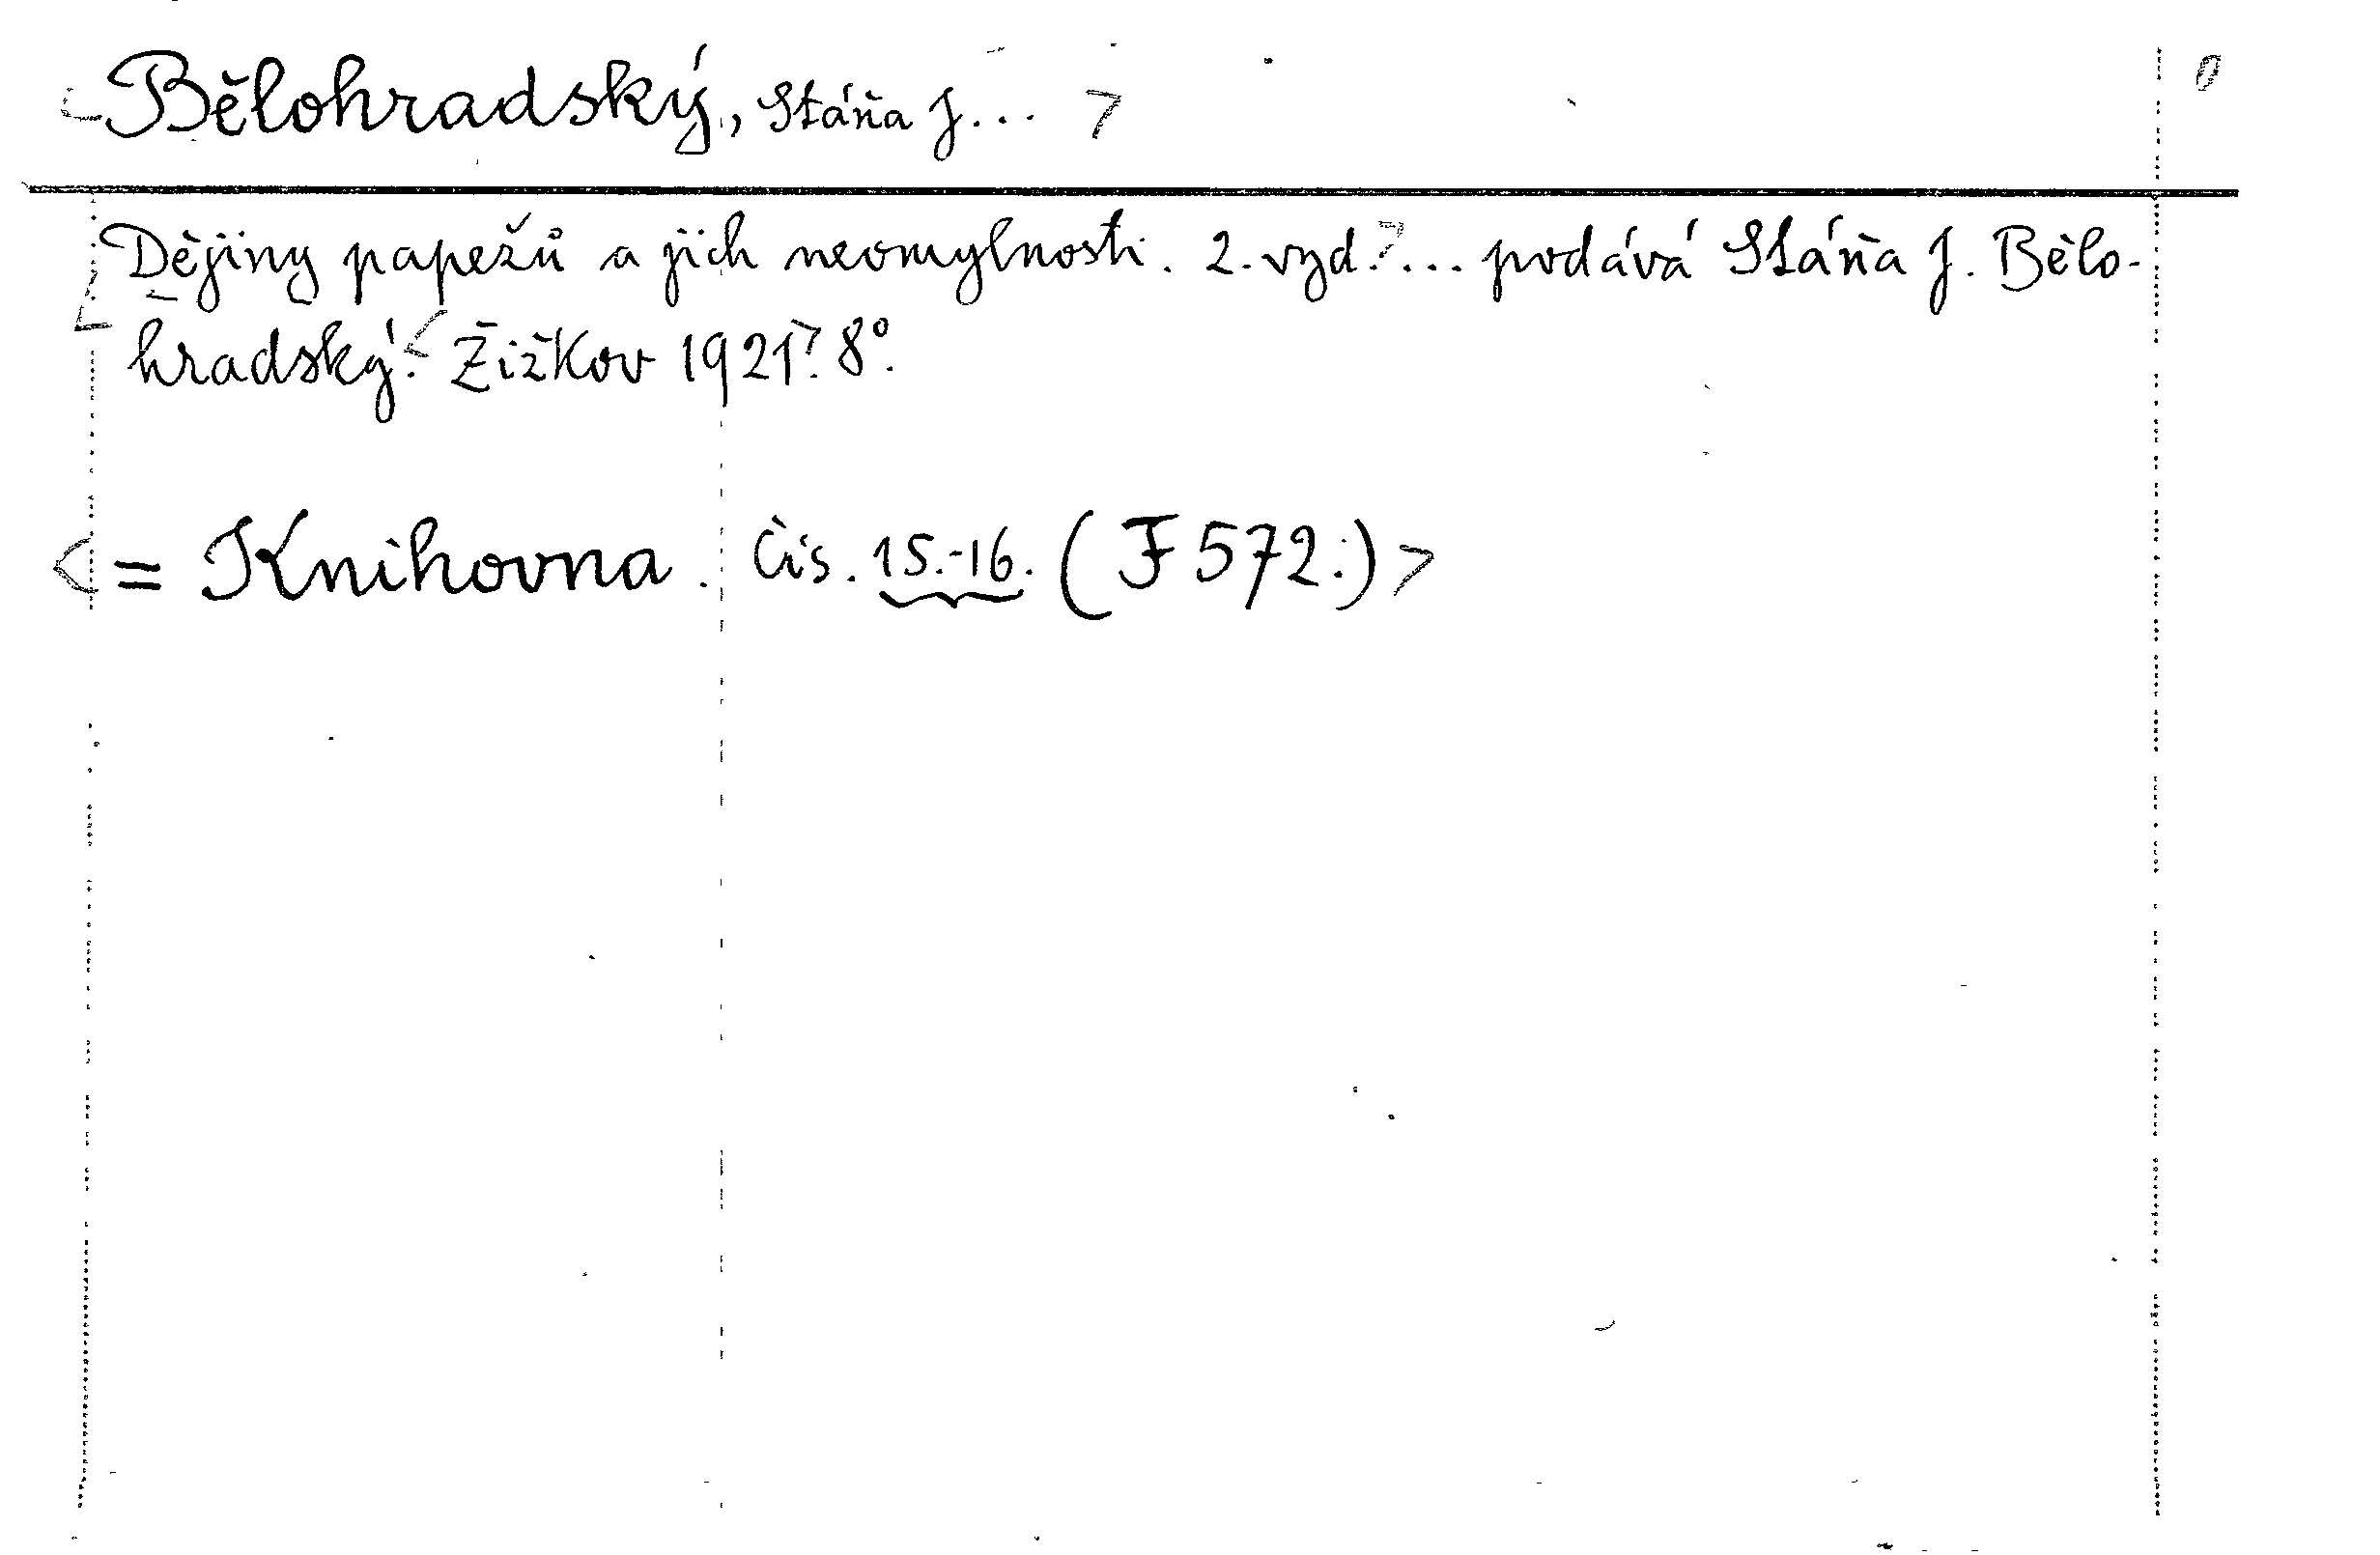 <Bělohradský, Stáňa J... >
Dějiny papežů a jich neomylnosti. 2. vyd.> ... podává Stáňa J. Bělo-
hradský. < Žižkov 1921>. 8°.
<= Knihovna. čís. 15.-16. (F 572.)>